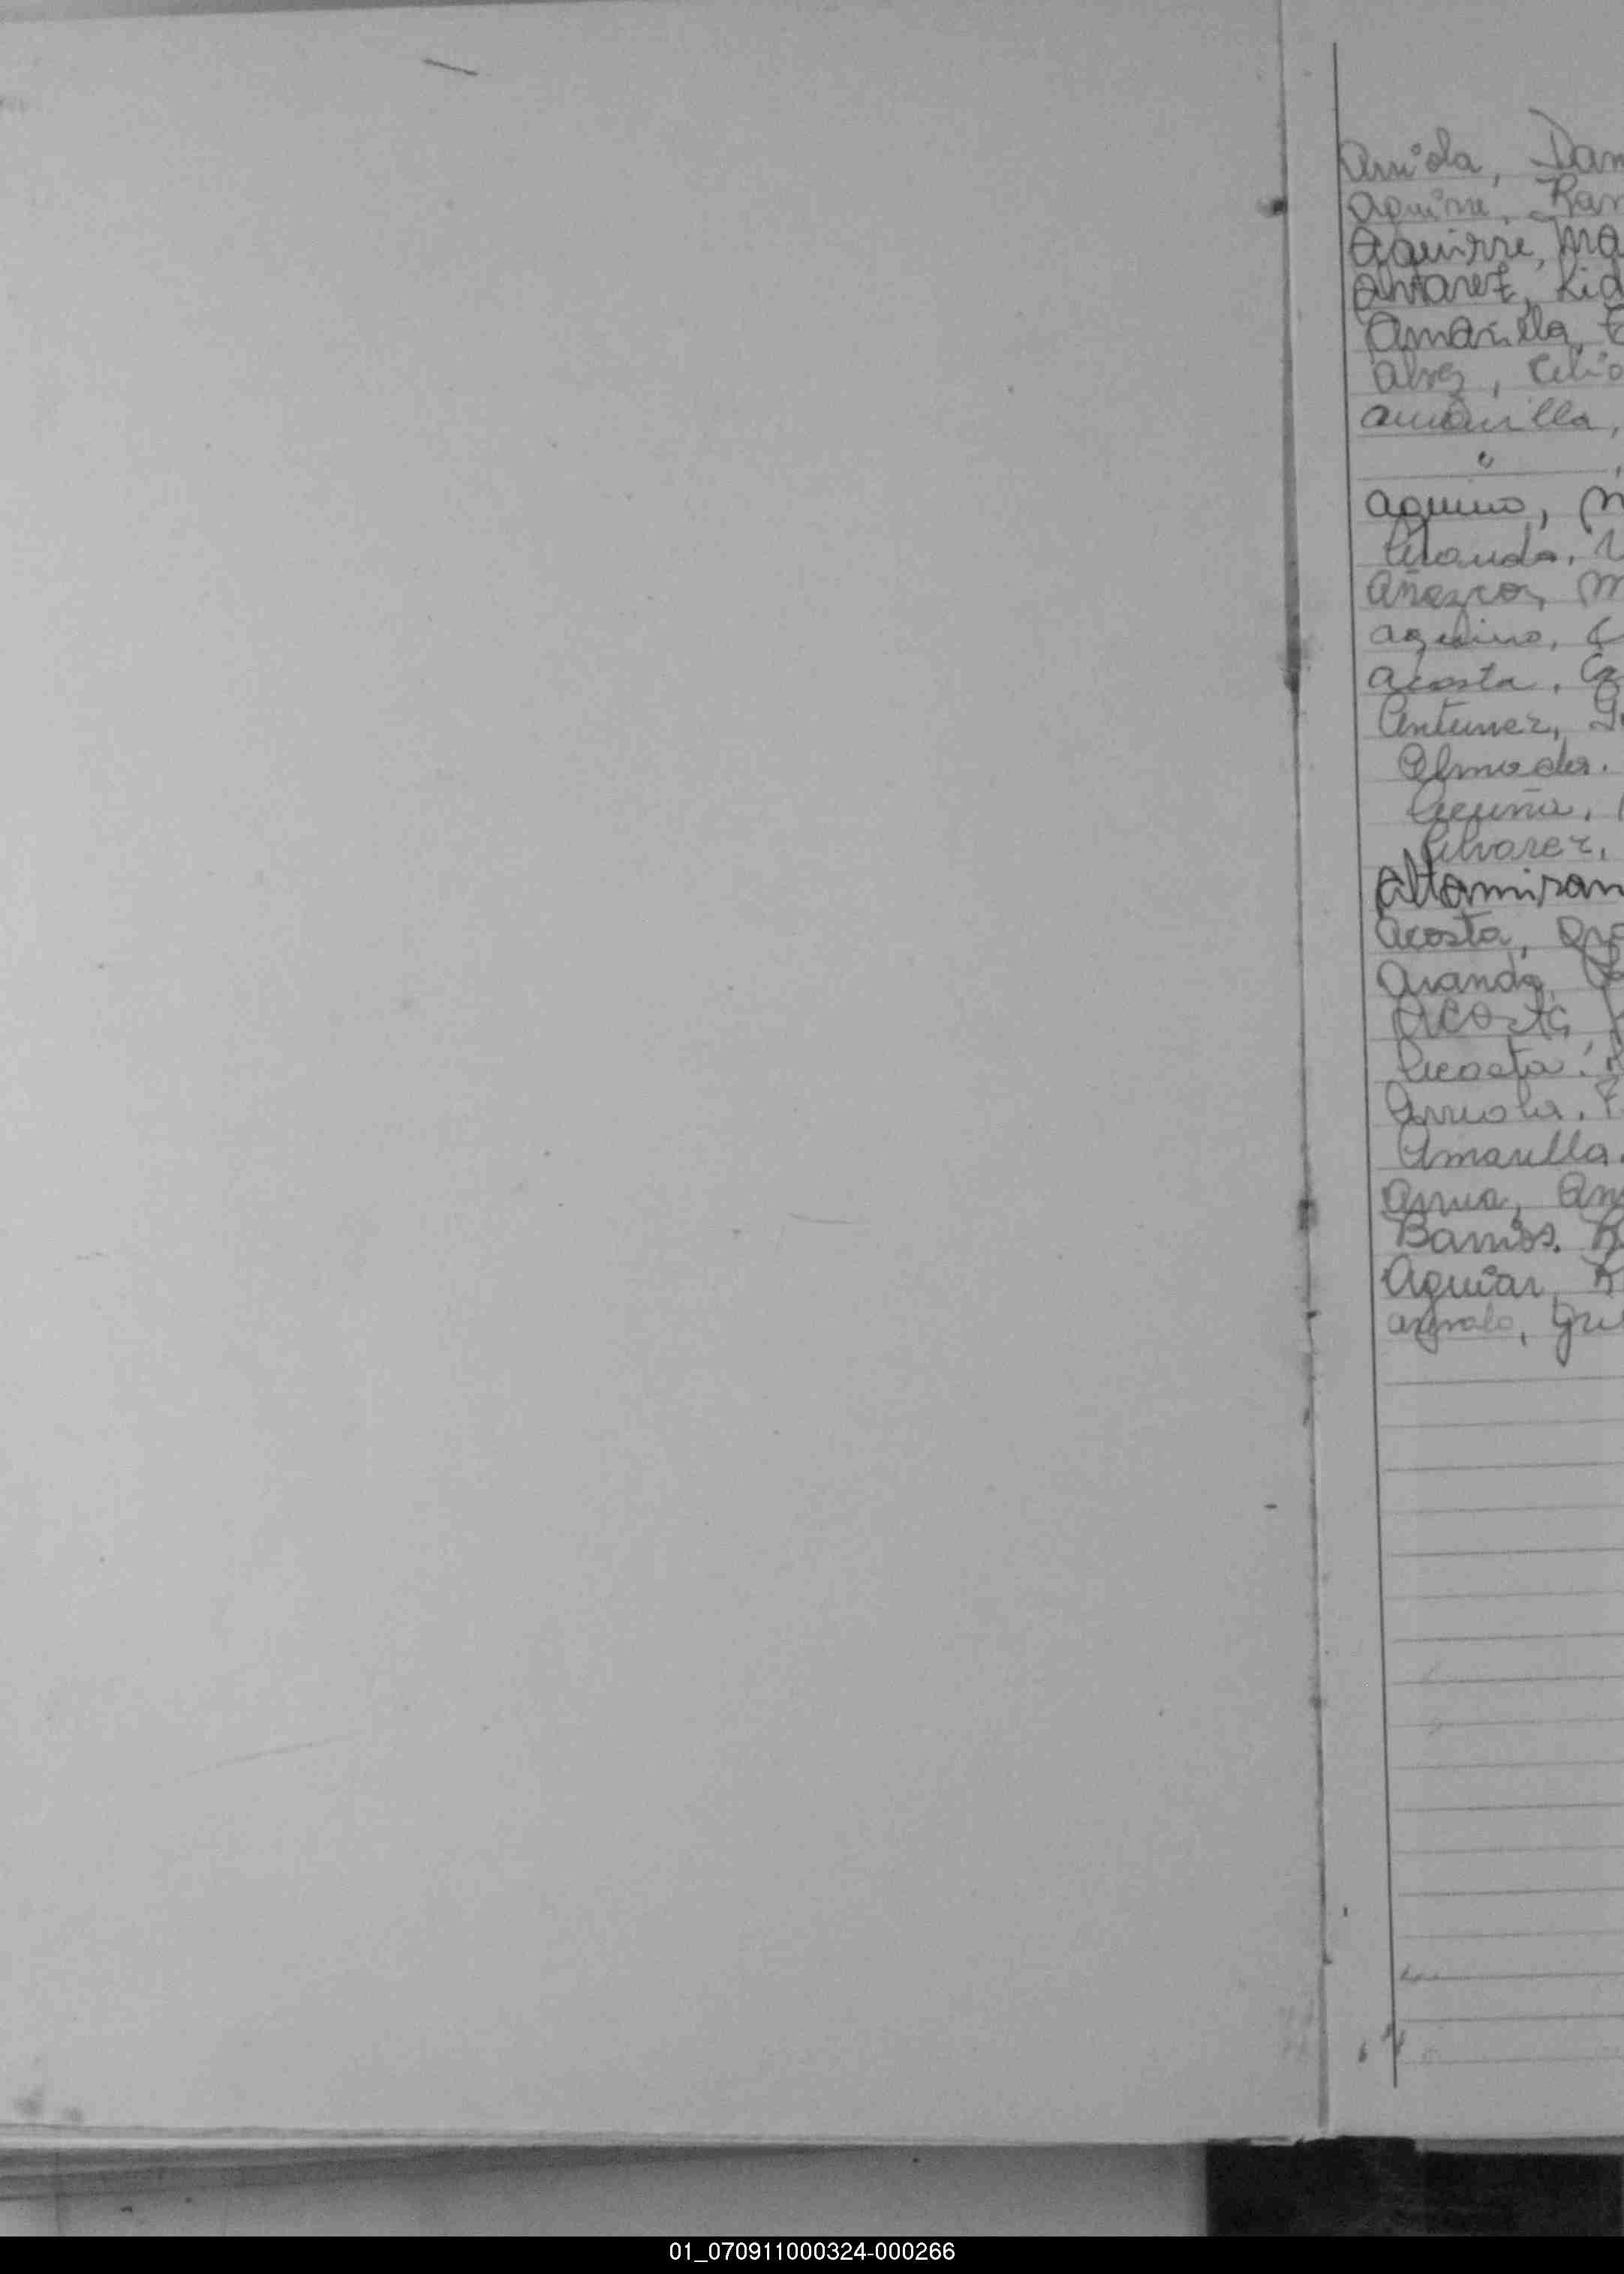 Arriola, Dam
Aguirre, Ram
Aguirre, Ma
Alvarez, Lid
Amarilla, E
Alvez, Celio
Amarilla,
" ,
Aquino, M
Aranda, V
Añazco, M
Aquino, C
Acosta, Ce
Antunez, G
Almada.
Acuña,
Alvarez,
Altamiran
Acosta,
Aranda,
Acosta,
Acosta. R
Arriola. F
Amarilla.
Arrua, An
Barrios. R
Aguiar, R
01_070911000324-000266